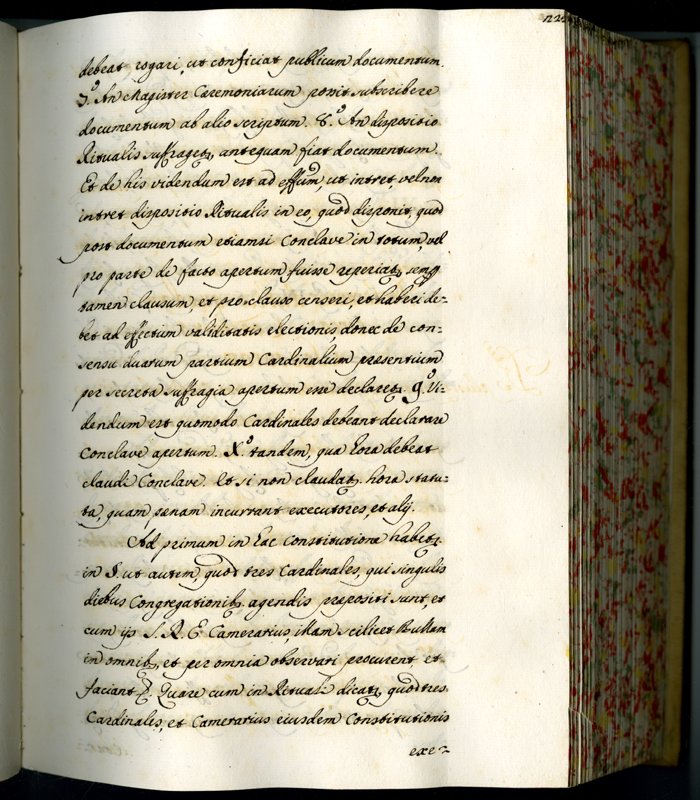 debeat rogari, ut conficiat publicum documentum.
7.º An Magister Caeremoniarum possit subscribere
documentum ab alio scriptum. 8.º An dispositio
Ritualis suffraget, antequam fiat documentum.
Et de his videndum est ad effūm, ut intret, vel non
intret dispositio Ritualis in eo, quod disponit, quod
post documentum etiamsi Conclave in totum, vel
pro parte de facto apertum fuisse reperiat,
tamen clausum, et pro clauso censeri, et haberi de=
bet ad effectum validitatis electionis, donec de con=
sensu duarum partium Cardinalium presentium
per secreta suffragia apertum esse declaret. 9.º Vi=
dendum est quomodo Cardinales debeant declarare
Conclave apertum. X.º tandem, qua hora debeat
claudi Conclave. Et si non claudat, hora statu=
ta, quam paenam incurrant executores, et alij.
Ad primum in hac Constitutione habet,
in §. ut autem, quod tres Cardinales, qui singulis
diebus Congregationib, agendis praepositi sunt, et
cum ijs S. R. E. Camerarius, illam scilicet Bullam
in omnib, et per omnia observari procurent et
faciant &. Quare cum in Rituali dicat, quod tres
Cardinales, et Camerarius eiusdem Constitutionis
exe=